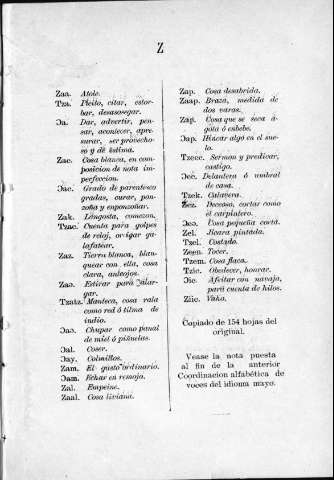 Z
Zaa. Atole.
Tza. Pleito, citar, estor-
bar, desasosegar.
Ɔa. Dar, advertir, pen-
sar, acontecer, apre-
surar, ser provecho-
so y de estima.
Zac. Cosa blanca, en com-
posicion de nota im-
perfeccion.
Ɔac. Grado de parentesco
gradas, curar, pon-
zoña y enponzoñar.
Zak. Langosta, comezon.
Tzac. Cuenta para golpes
de reloj,
lafatear.
Zaz. Tierra blanca, blan-
quear con ella, cosa
clara, anteojos.
Ɔao. Estirar para alar-
gar.
Tzatz. Manteca, cosa rala
como red ó tilma de
indio.
Ɔaɔ. Chupar como panal
de miel ó piñuelas.
Ɔal. Coser.
Ɔay. Colmillos.
Zam. El gusto ordinario.
Ɔam. Echar en remojo.
Zal. Empeine.
Zaal. Cosa liviana.
Zap. Cosa desabrida.
Zaap. Braza, medida de
dos varas.
Zap. Cosa que se seca a-
gota ó embebe.
Ɔap. Hincar algo en el sue-
lo.
Tzecc. Sermon y predicar,
castigo.
Ɔec. Delantera ó umbral
de casa.
Tzek. Calavera.
Zez. Decosa, cortar como
el carpintero.
Ɔeɔ. Cosa pequeña corta.
Zel. Jícara pintada.
Tzel. Costado.
Zeen. Tocer.
Tzem. Cosa flaca.
Tzic. Obedecer, honrar.
Ɔic. Afeitar con navaja,
para cuenta de hilos.
Ziic. Vaho.
Copiado de 154 hojas del
original.
Vease la nota puesta
al fin de la anterior
Coordinacion alfabética de
voces del idioma mayo.